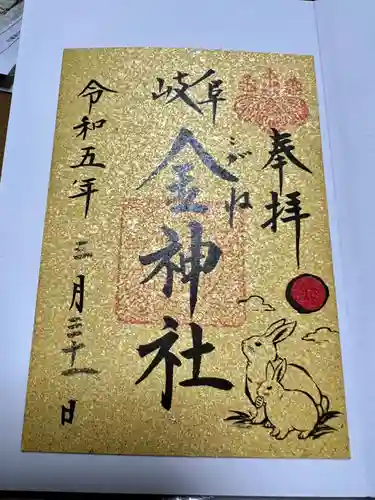 奉拝
岐阜
金神社
こがね
令和五年三月三十一日